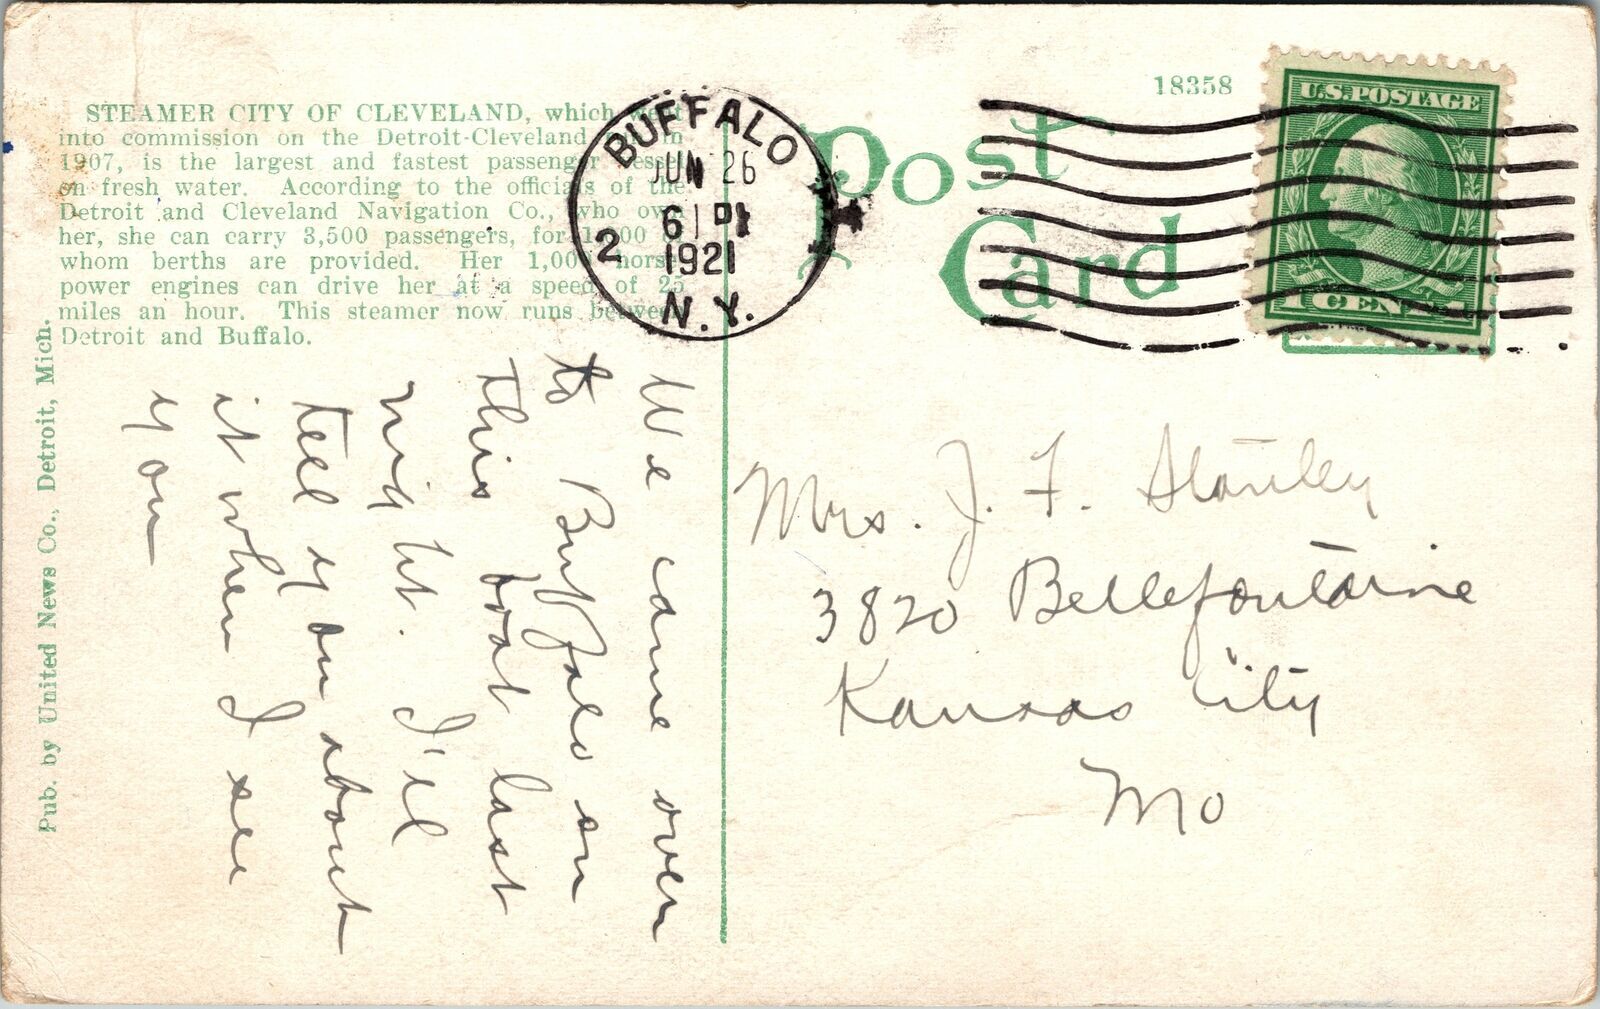 STEAMER CITY OF CLEVELAND, which went
into commission on the Detroit-Cleveland in
1907, is the largest and fastest passenger vessel
on fresh water. According to the officials of the
Detroit and Cleveland Navigation Co., who own
her, she can carry 3,500 passengers, for of
whom berths are provided. Her 1,000 horse
power engines can drive her at a speed of 25
miles an hour. This steamer now runs between
Detroit and Buffalo.
Pub. by United News Co., Detroit, Mich.
We came over
to Buffalo on
this boat last
night. I'll
tell you about
it when I see
you
BUFFALO
JUN 26
6 PM
1921
N.Y.
2
18358
Post
Card
U.S. POSTAGE
1 CENT 1
Mrs. J. F. Stanley
3820 Bellefontaine
Kansas City
Mo